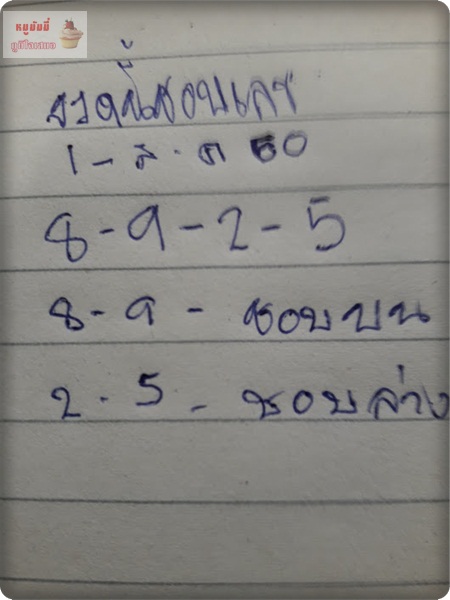 หนูบันนี่
ภูมิใจเสนอ
งวดนี้ชอบเลข
1 - มี. ค 60
8 - 9 - 2 - 5
8 - 9 - ชอบบน
2 - 5 - ชอบล่าง